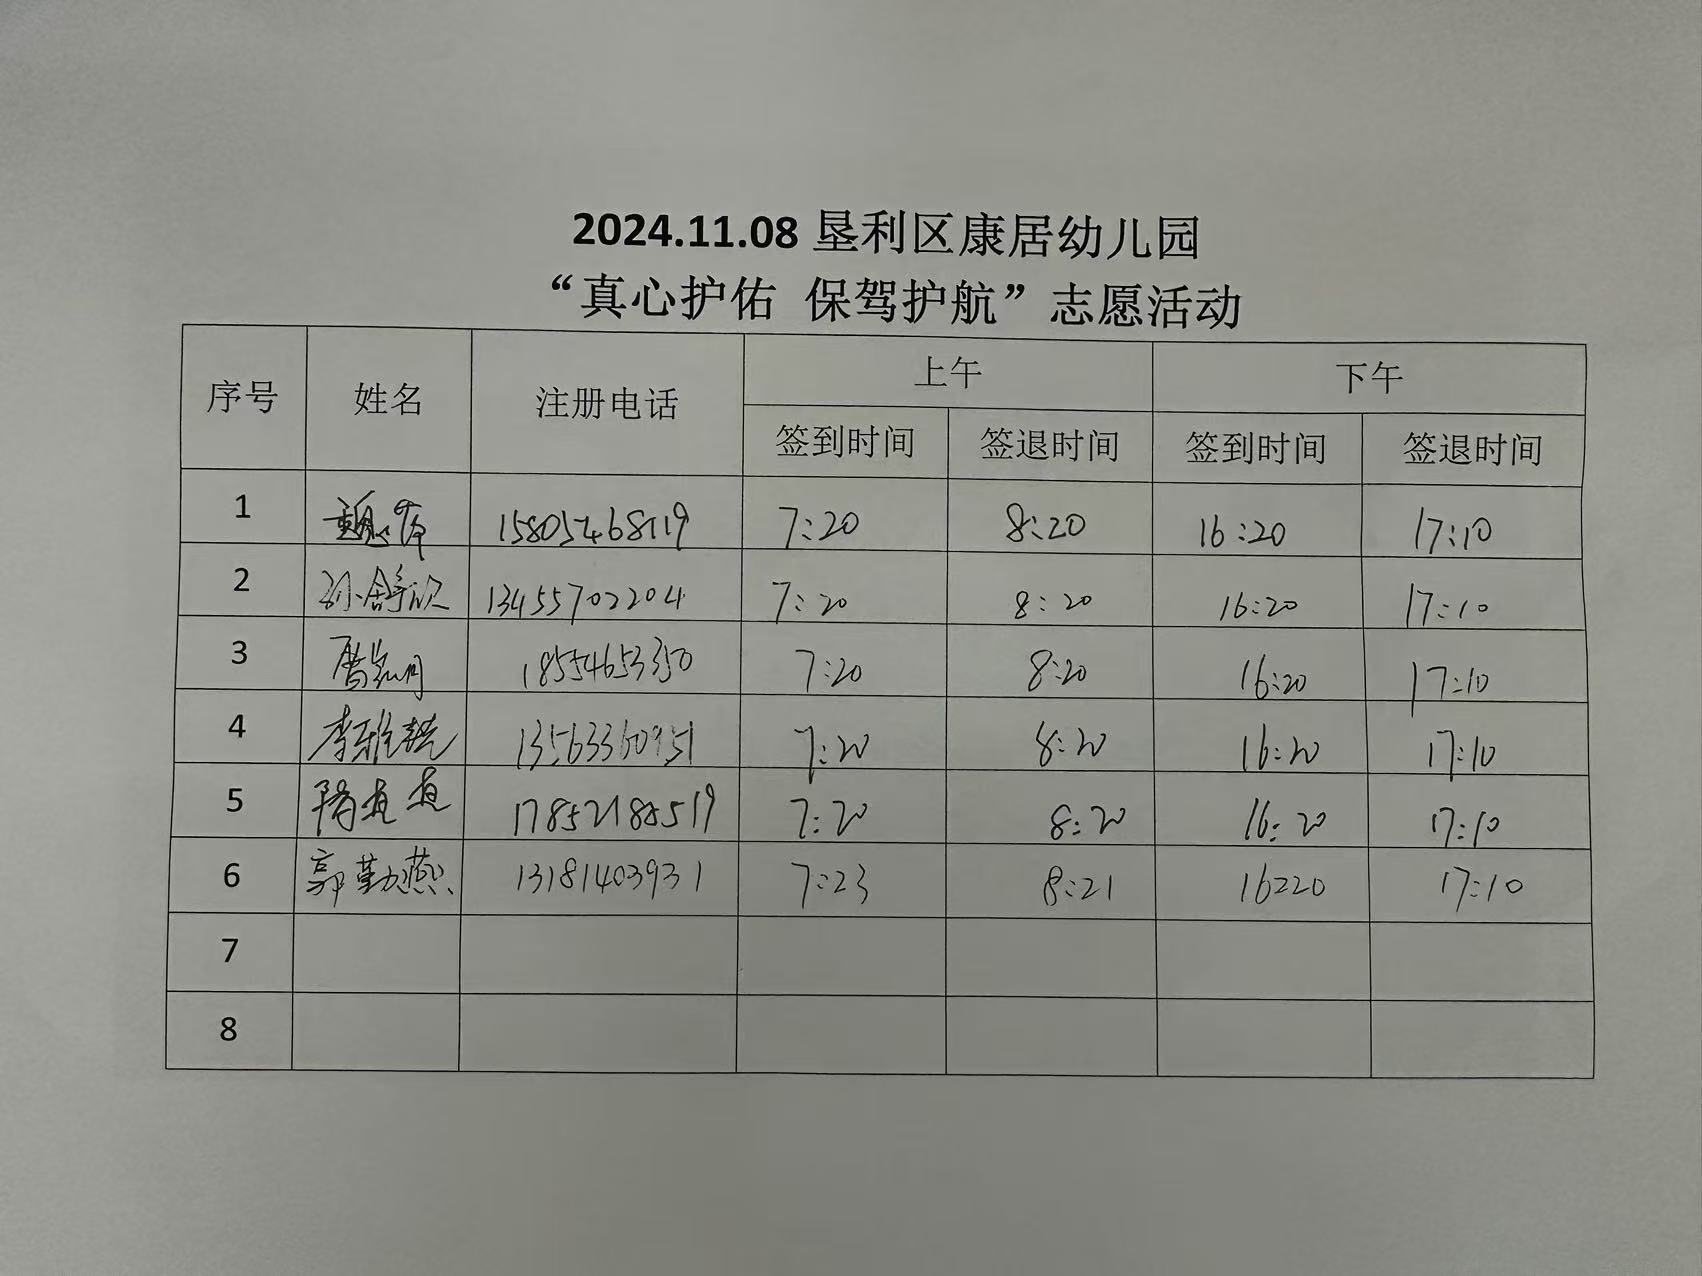 2024.11.08 垦利区康居幼儿园
“真心护佑 保驾护航”志愿活动
序号 姓名 注册电话 上午 下午
签到时间 签退时间 签到时间 签退时间
1 15805468119 7:20 8:20 16:20 17:10
2 孙舒欣 13455702204 7:20 8:20 16:20 17:10
3 18554653350 7:20 8:20 16:20 17:10
4 李雅 13563360951 7:20 8:20 16:20 17:10
5 隋真真 17852188519 7:20 8:20 16:20 17:10
6 郭勤燕 13181403931 7:23 8:21 16220 17:10
7
8